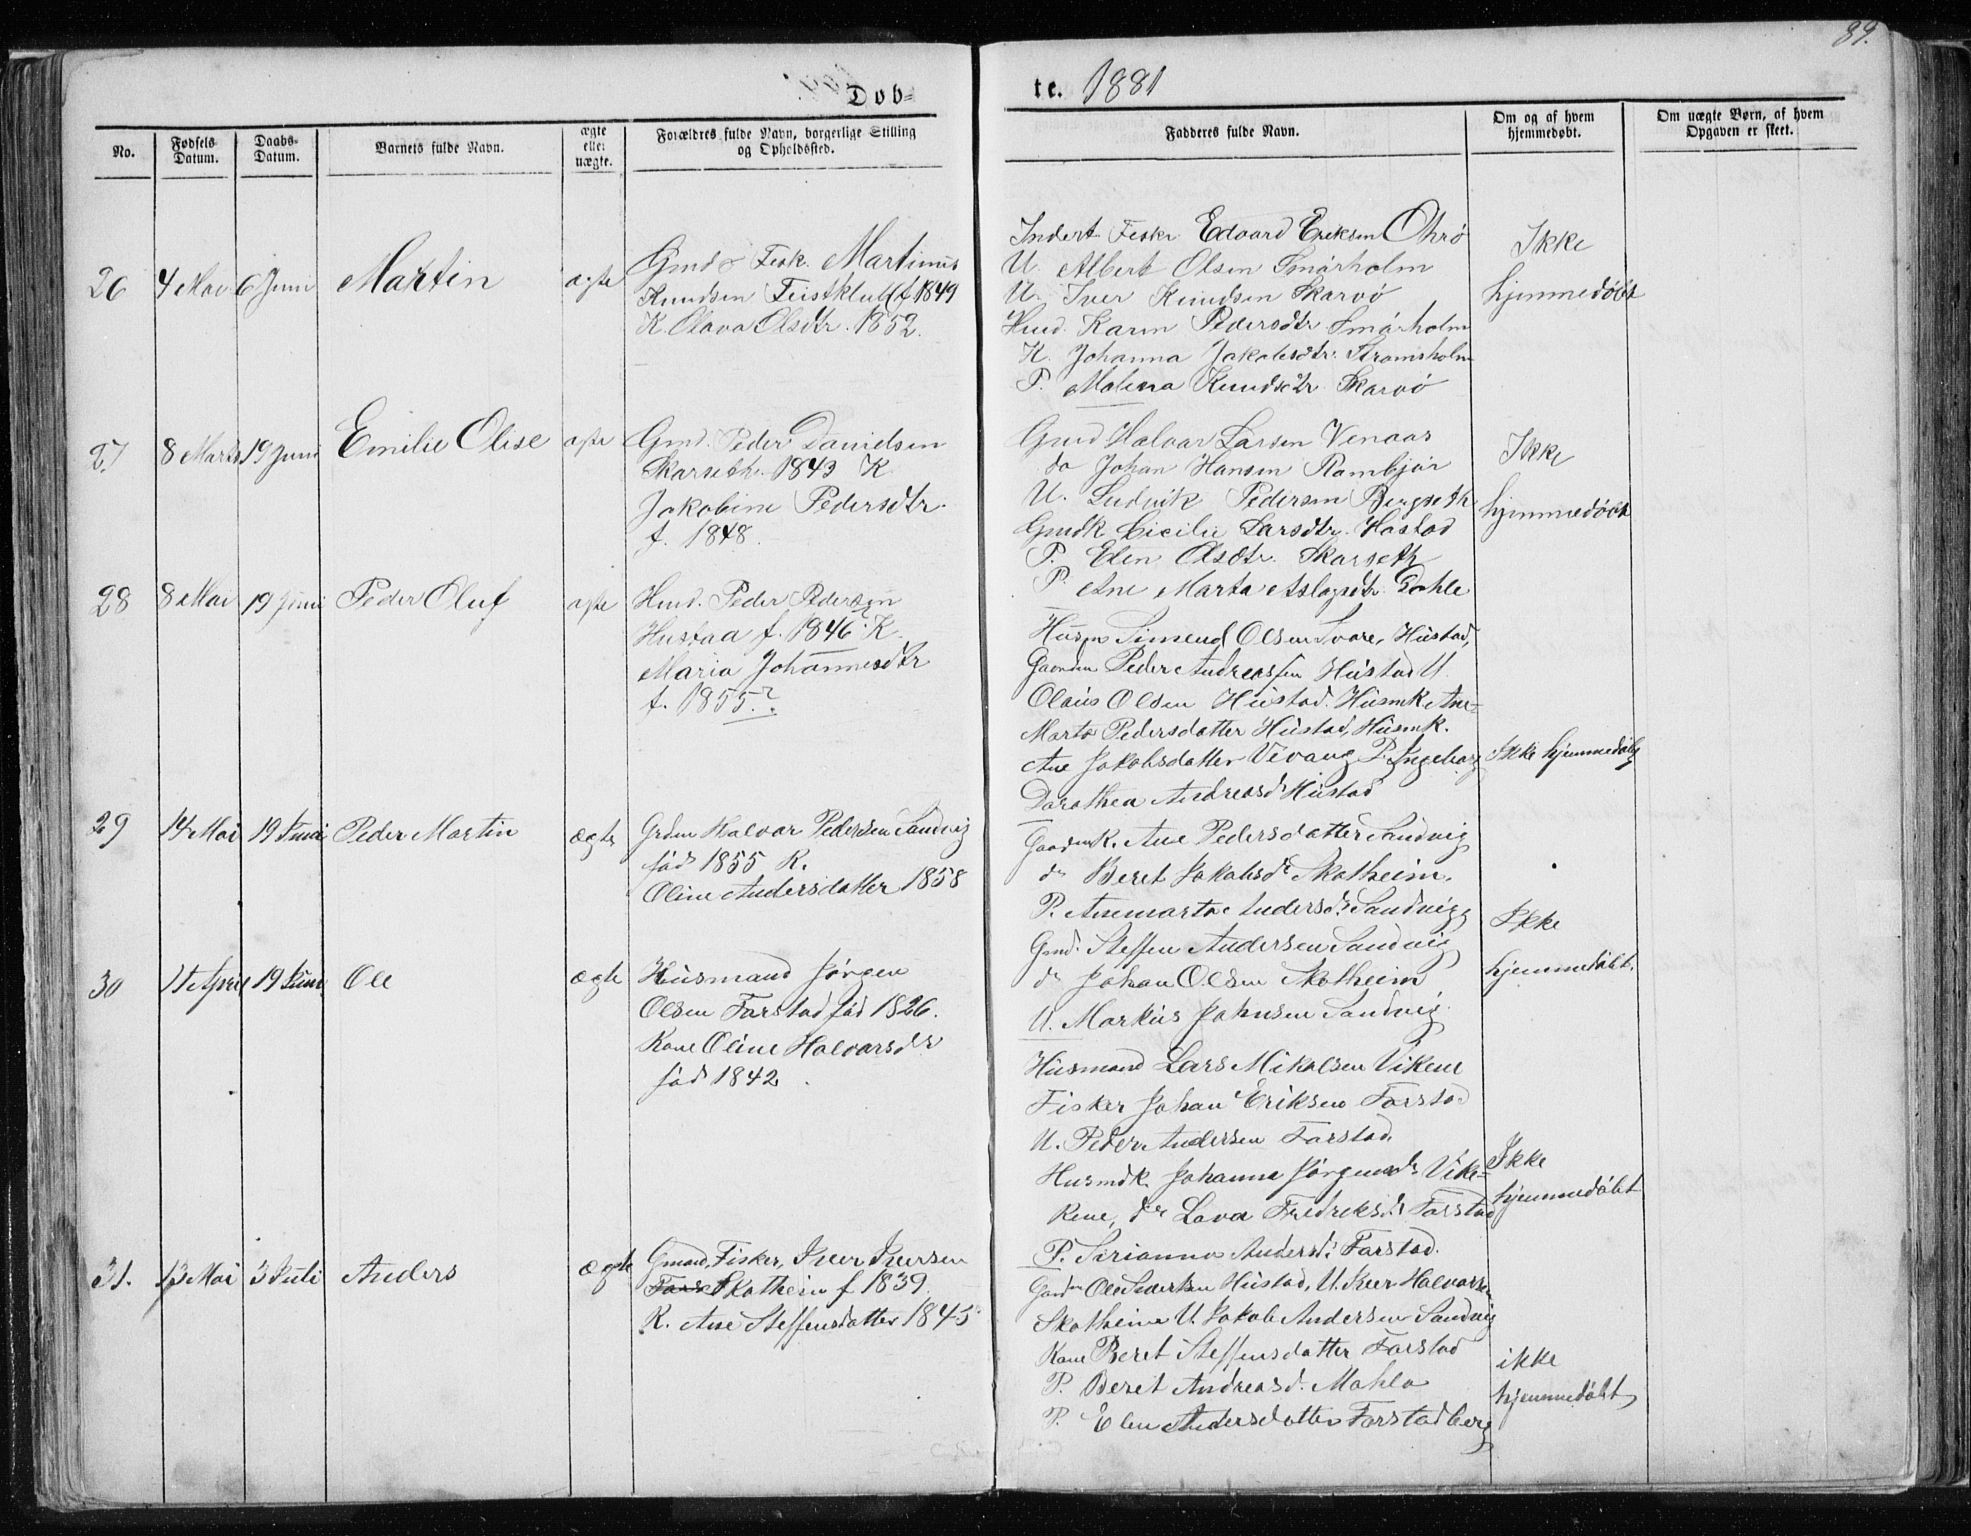 89.
Døb=
te. 1881
No.
Fødsels
Datum.
Daabs-
Datum.
Barnets fulde Navn.
ægte
eller
uægte.
Forældres fulde Navn, borgerlige Stilling
og Opholdssted.
Fadderes fulde Navn.
Om og af hvem
hjemmedøbt.
Om uægte Børn, af hvem
Opgaven er skeet.
26 4 Mai 6 Juni Martin ægte
Gmd & Fisk. Martinus
Knudsen Feistklub f. 1849
K. Olava Olsdtr. 1852.
Inderst Fisker Edvard Eriksen Othrø
U. Albert Olsen Smørholm
U. Iver Knudsen Skarvø
Hmd. Karen Pedersdtr. Smørholm
K. Johanna Jakobsdtr. Strømsholm
P. Malena Knudsdtr Skarvø
Ikke
hjemmedøbt
27 8 Marts 19 Juni Emilie Olise ægte
Gmd. Peder Danielsen
Skarseth. 1843 K.
Jakobine Pedersdtr.
f. 1848.
Gmd Halvar Larsen Venaas
do Johan Hansen Rambjør
U. Ludvik Pedersen Bergseth
GmdK Cicilie Larsdtr. Hostad
P. Elen Olsdtr. Skarseth
P. Ane Marta Aslagsdtr. Dahle
Ikke
hjemmedøbt
28 8 Mai 19 Juni Peder Oluf ægte
Hmd. Peder Pedersen
Hustad f. 1846 K.
Maria Johannesdtr
f. 1855?
Husm Simend Olsen Svare, Hustad,
Gaardm Peder Andreassen Hustad U.
Olaus Olsen Hustad. HusmK Ane
Marta Pedersdatter Hustad, HusmK.
Ane Jakobsdatter Vevang P. Ingeborg
Dorothea Andreasd. Hustad
Ikke hjemmedøbt
29 14 Mai 19 Juni Peder Martin ægte
Grdm Halvor Pedersen Sandvig
fød 1855 K.
Oline Andersdatter 1858
GaardmK. Ane Pedersdatter Sandvig
do Beret Jakobsdr Skotheim.
P. Anemarta Andersdr Sandvig
Gmd. Steffen Andersen Sandvig
do Johan Olsen Skotheim
U. Markus Johnsen Sandvig
Ikke
hjemmedøbt.
30 11 April 19 Juni Ole ægte
Husmand Jørgen
Olsen Farstad fød 1826.
Kone Oline Halvarsdr
fød 1842.
Husmand Lars Mikalsen Vikene
Fisker Johan Eriksen Farstad
U. Peder Andersen Farstad.
Husmdk. Johanna Jørgensdr Vike=
kene, do Lava Fredreksdr Farstad
P. Sirianna Andersd. Farstad.
Ikke
hjemmedøbt
31. 13 Mai 3 Juli Anders ægte
Gmand, Fisker, Iver Iversen
Skotheim f 1839.
K. Ane Steffensdatter 1845
Gardm Ole Sivertsen Hustad, U. Iver Halvarsen
Skotheim U. Jakob Andersen Sandvig
Kone Beret Steffensdatter Farstad
P. Beret Andreasd. Mahle
P. Elen Andersdatter Farstadberg
ikke
hjemmedøbt